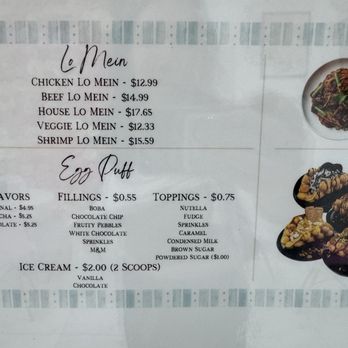 Lo Mein
Chicken Lo Mein - $12.99
Beef Lo Mein - $14.99
House Lo Mein - $17.65
Veggie Lo Mein - $12.33
Shrimp Lo Mein - $15.59
Egg Puff
avors
nal - $4.95
cha - $5.25
olate - $5.25
Fillings - $0.55
Boba
Chocolate Chip
Fruity Pebbles
White Chocolate
Sprinkles
M&M
Toppings - $0.75
Nutella
Fudge
Sprinkles
Caramel
Condensed Milk
Brown Sugar
Powdered Sugar ($1.00)
Ice Cream - $2.00 (2 Scoops)
Vanilla
Chocolate